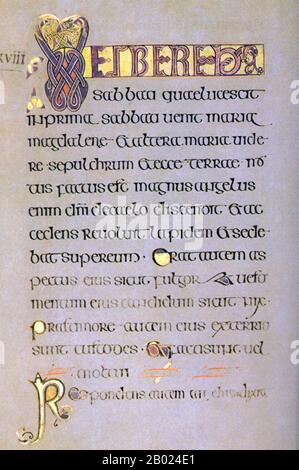 xviii
VESPERE
sabbati quae lucescit
in prima sabbati venit maria
magdalene et altera maria vide
re sepulchrum et ecce terrae mo
tus factus est magnus angelus
enim dni de caelo discendit et ac
cedens revolvit lapidem et sede
bat super eum. Erat autem as
pectus eius sicut fulgor et vesti
mentum eius candidum sicut nix.
Prae timore autem eius exterriti
sunt custodes. et facti sunt vel
mortui
Respondens autem
alamy stock photo
2B024E1